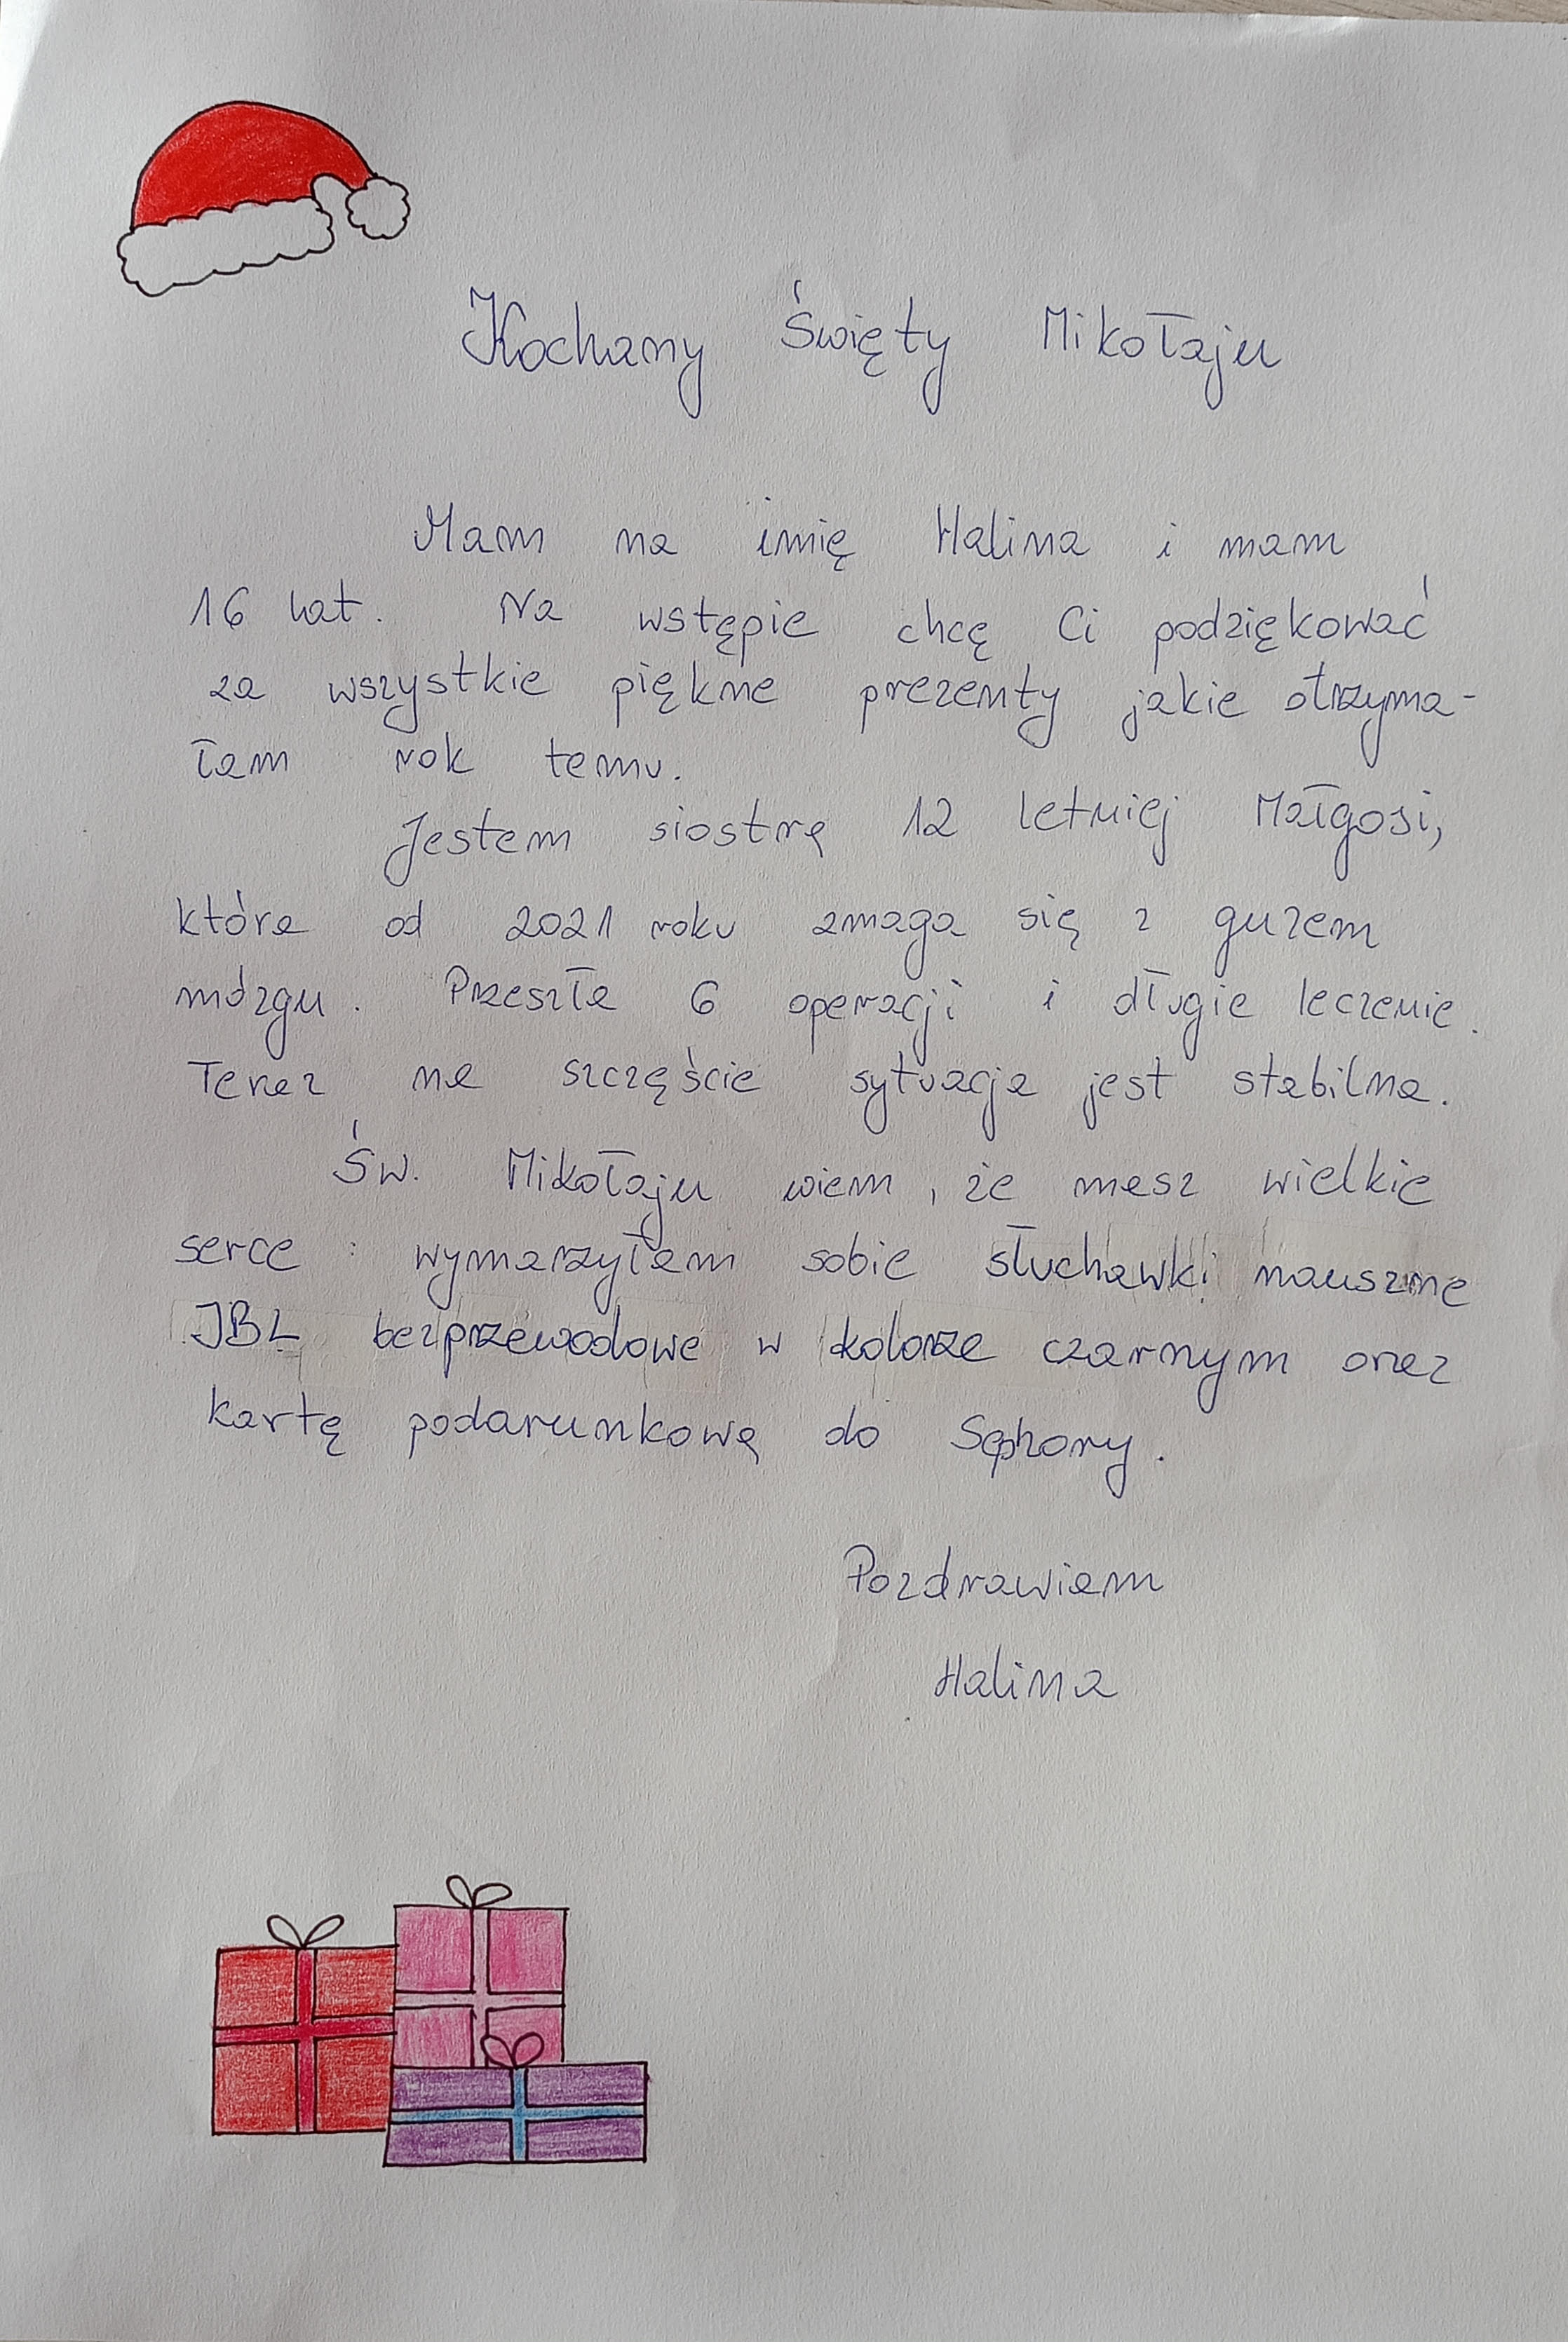 Kochany Święty Mikołaju
Mam na imię Halina i mam
16 lat. Na wstępie chcę Ci podziękować
za wszystkie piękne prezenty jakie otrzyma-
łam rok temu.
Jestem siostrą 12 letniej Małgosi,
która od 2021 roku zmaga się z guzem
mózgu. Przeszła 6 operacji i długie leczenie.
Teraz na szczęście sytuacja jest stabilna.
Św. Mikołaju wiem, że masz wielkie
serce i wymarzyłam sobie słuchawki nauszne
JBL bezprzewodowe w kolorze czarnym oraz
kartę podarunkową do Sephory.
Pozdrawiam
Halina